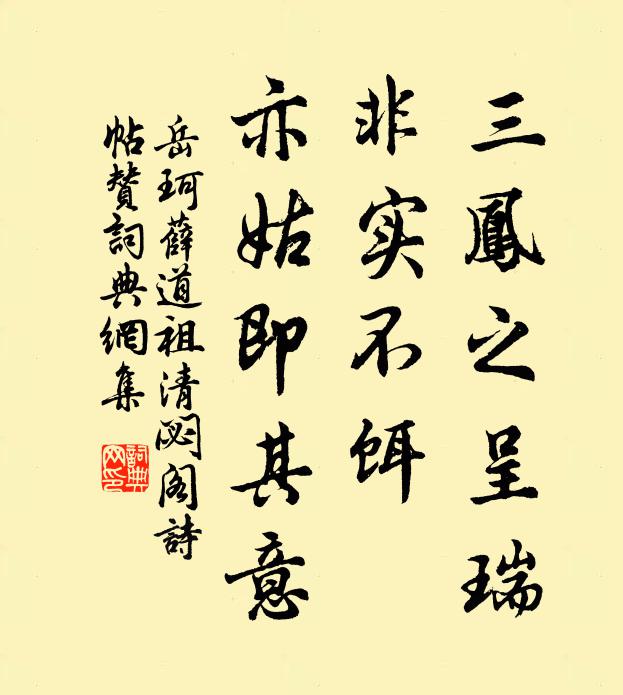 三鳳之呈瑞
非实不饵
亦姑即其意
岳珂薛道祖清閟阁詩
帖賛詞典網集
詞典
网印